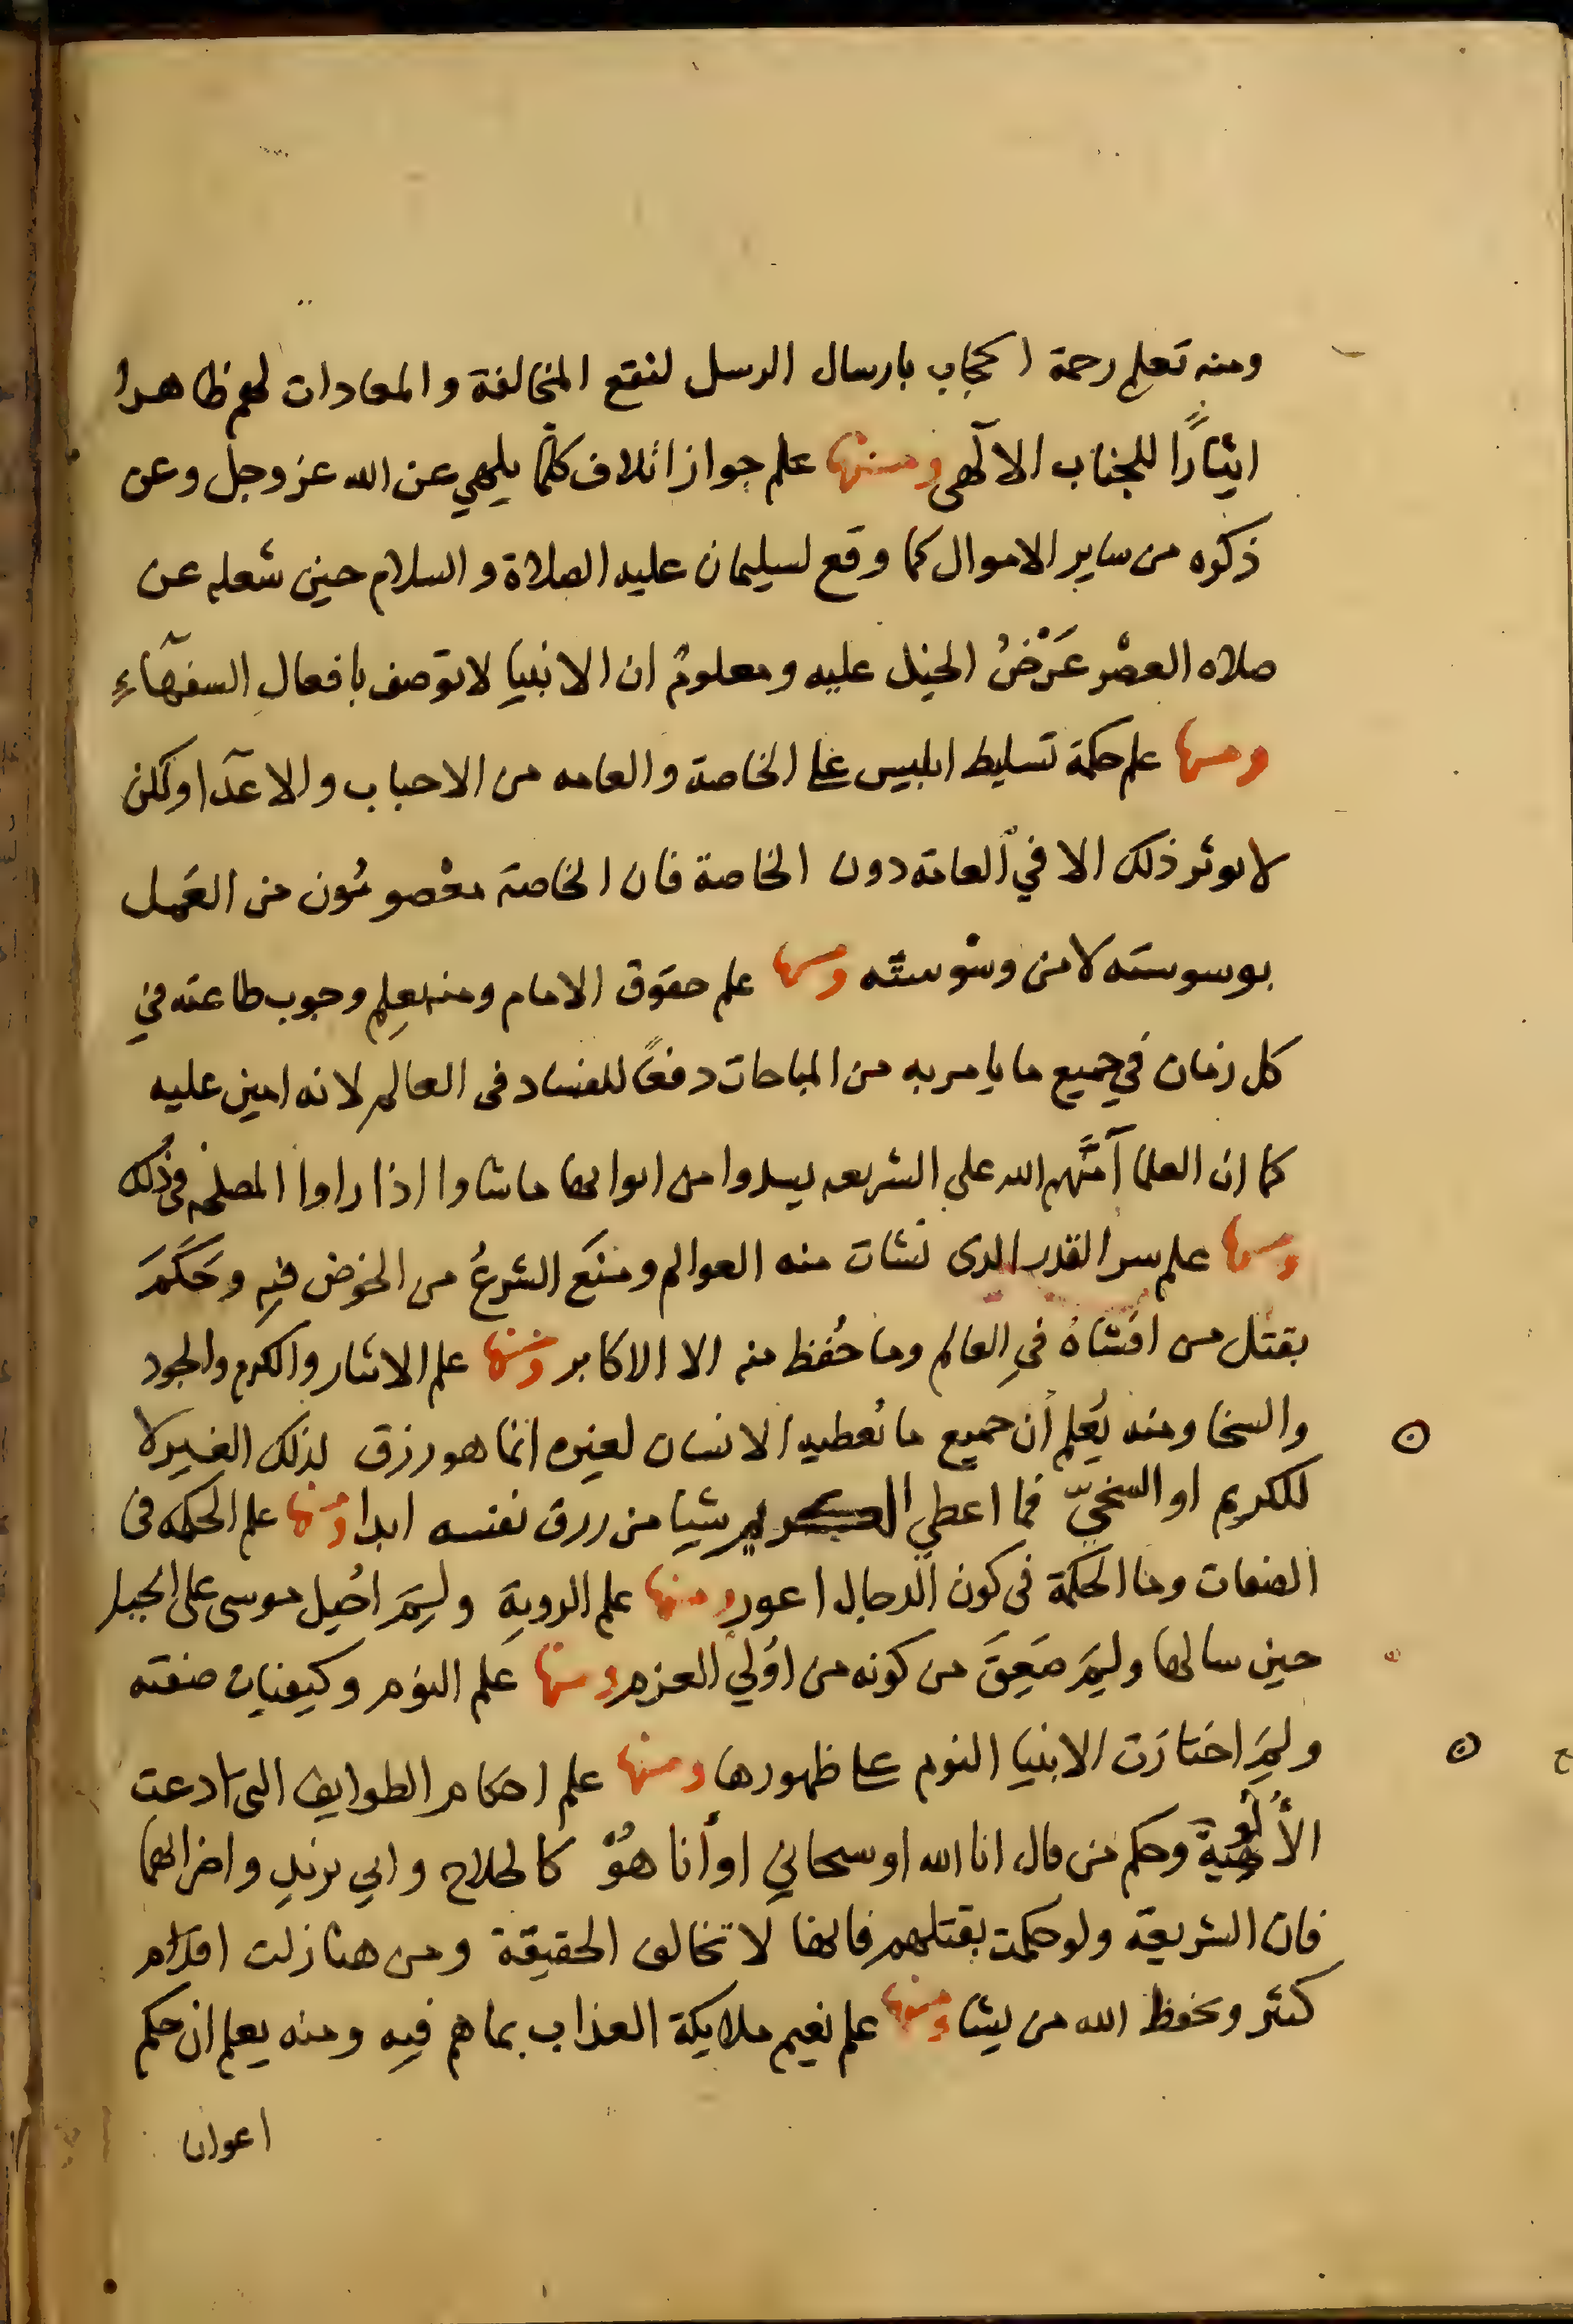 ومنه تعلم رحمة الحجاب بارسال الرسل لتقع المخالفة والمعادات لهم ظاهرا
ايثارًا للجناب الالهى ومنها علم جواز اتلاف كلما يلهي عن الله عز وجل وعن
ذكره من ساير الاموال كما وقع لسليمان عليه الصلاة والسلام حين شغله عن
صلاه العصْر عَرْضُ الخيل عليه ومعلومٌ ان الانبيا لا توصف بافعالِ السفهآءِ
ومنها علم حكمة تسليط ابليس على الخاصة والعامه من الاحباب والاعدآ ولكن
لا يوثر ذلك الا في العامة دون الخاصة فان الخاصة معْصومُون من العَمل
بوسوسته لا من وسْوسته ومنها علم حقوق الامام ومنه يعلم وجوب طاعته في
كل زمان في جميع ما يامر به من المباحات دفعًا للفساد فى العالم لانه امين عليه
كما ان العلما آمَنَهم الله على الشريعه يبدوا من ابوابها ما شاوا اذا راوا المصلحة فى ذلك
ومنها علم سر القدر الذى نشات منه العوالم ومنَع الشرعُ من الخوض فيه وحَكَمَ
بقتل من افشاهُ في العالم وما حُفظ منه الا الاكابر ومنها علم الايثار والكرم والجود
والسخا ومنه يُعلم أن جميع ما يُعطيه الانسان لغيره انما هو رزق لذلك الغير لا
للكريم او السخيّ فما اعطي الكريم شيا من رزق نفسه ابدا ومنها علم الحكمه فى
الصفات وما الحكمة فى كون الدجال اعور ومنها علم الروية ولِمَ احُيل موسى على الجبل
حين سالها ولِمَ صَعِقَ من كونه من اوُلي العزم ومنها علم النوم وكيفيات صفته
ولِمَ اختارَت الانبيا النوم على ظهورها ومنها علم احكام الطوايف التى ادعت
الأُلُوهية وحكم من قال انا الله او سبحاني او أنا هُوْ كالحلاج وابي يزيد واضرابهما
فان الشريعة ولو حكمت بقتلهم فانها لا تخالف الحقيقة ومن هنا زلت اقدام
كثير ويحفظ الله من يشا ومنها علم نعيم ملايكة العذاب بما هم فيه ومنه يعلم ان حكم
اعوان